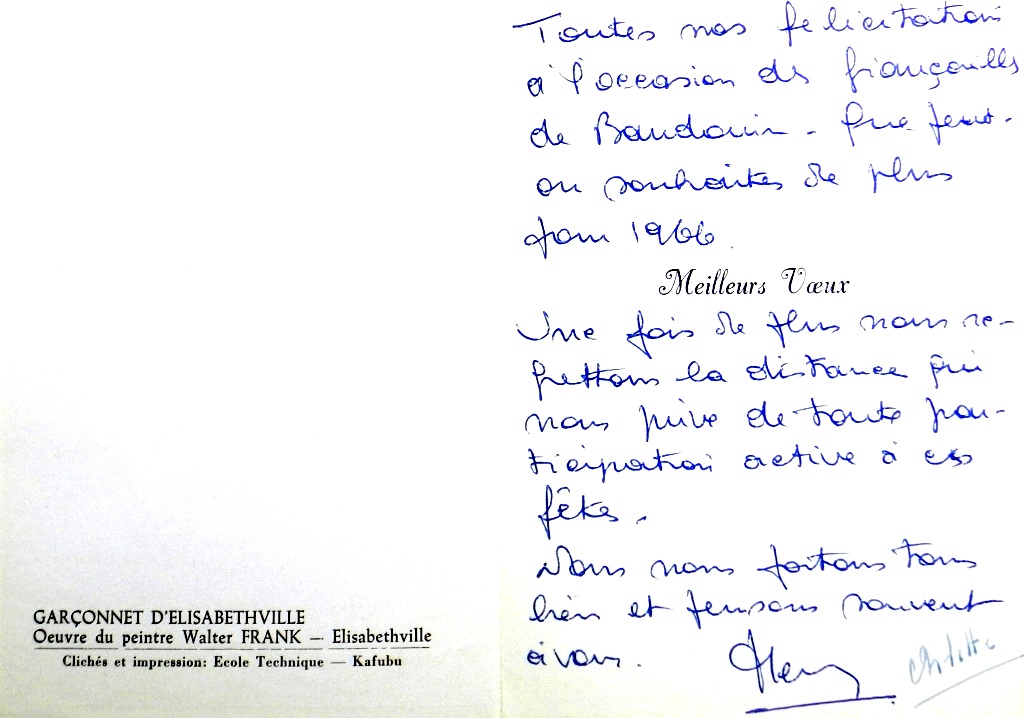 GARÇONNET D'ELISABETHVILLE
Oeuvre du peintre Walter FRANK — Elisabethville
Clichés et impression: Ecole Technique — Kafubu
Toutes nos felicitations
à l'occasion des fiançailles
de Baudouin - Que peut-
on souhaiter de plus
pour 1966.
Meilleurs Vœux
Une fois de plus nous re-
grettons la distance qui
nous prive de toute par-
ticipation active à ces
fêtes.
Nous nous portons tous
bien et pensons souvent
à vous.